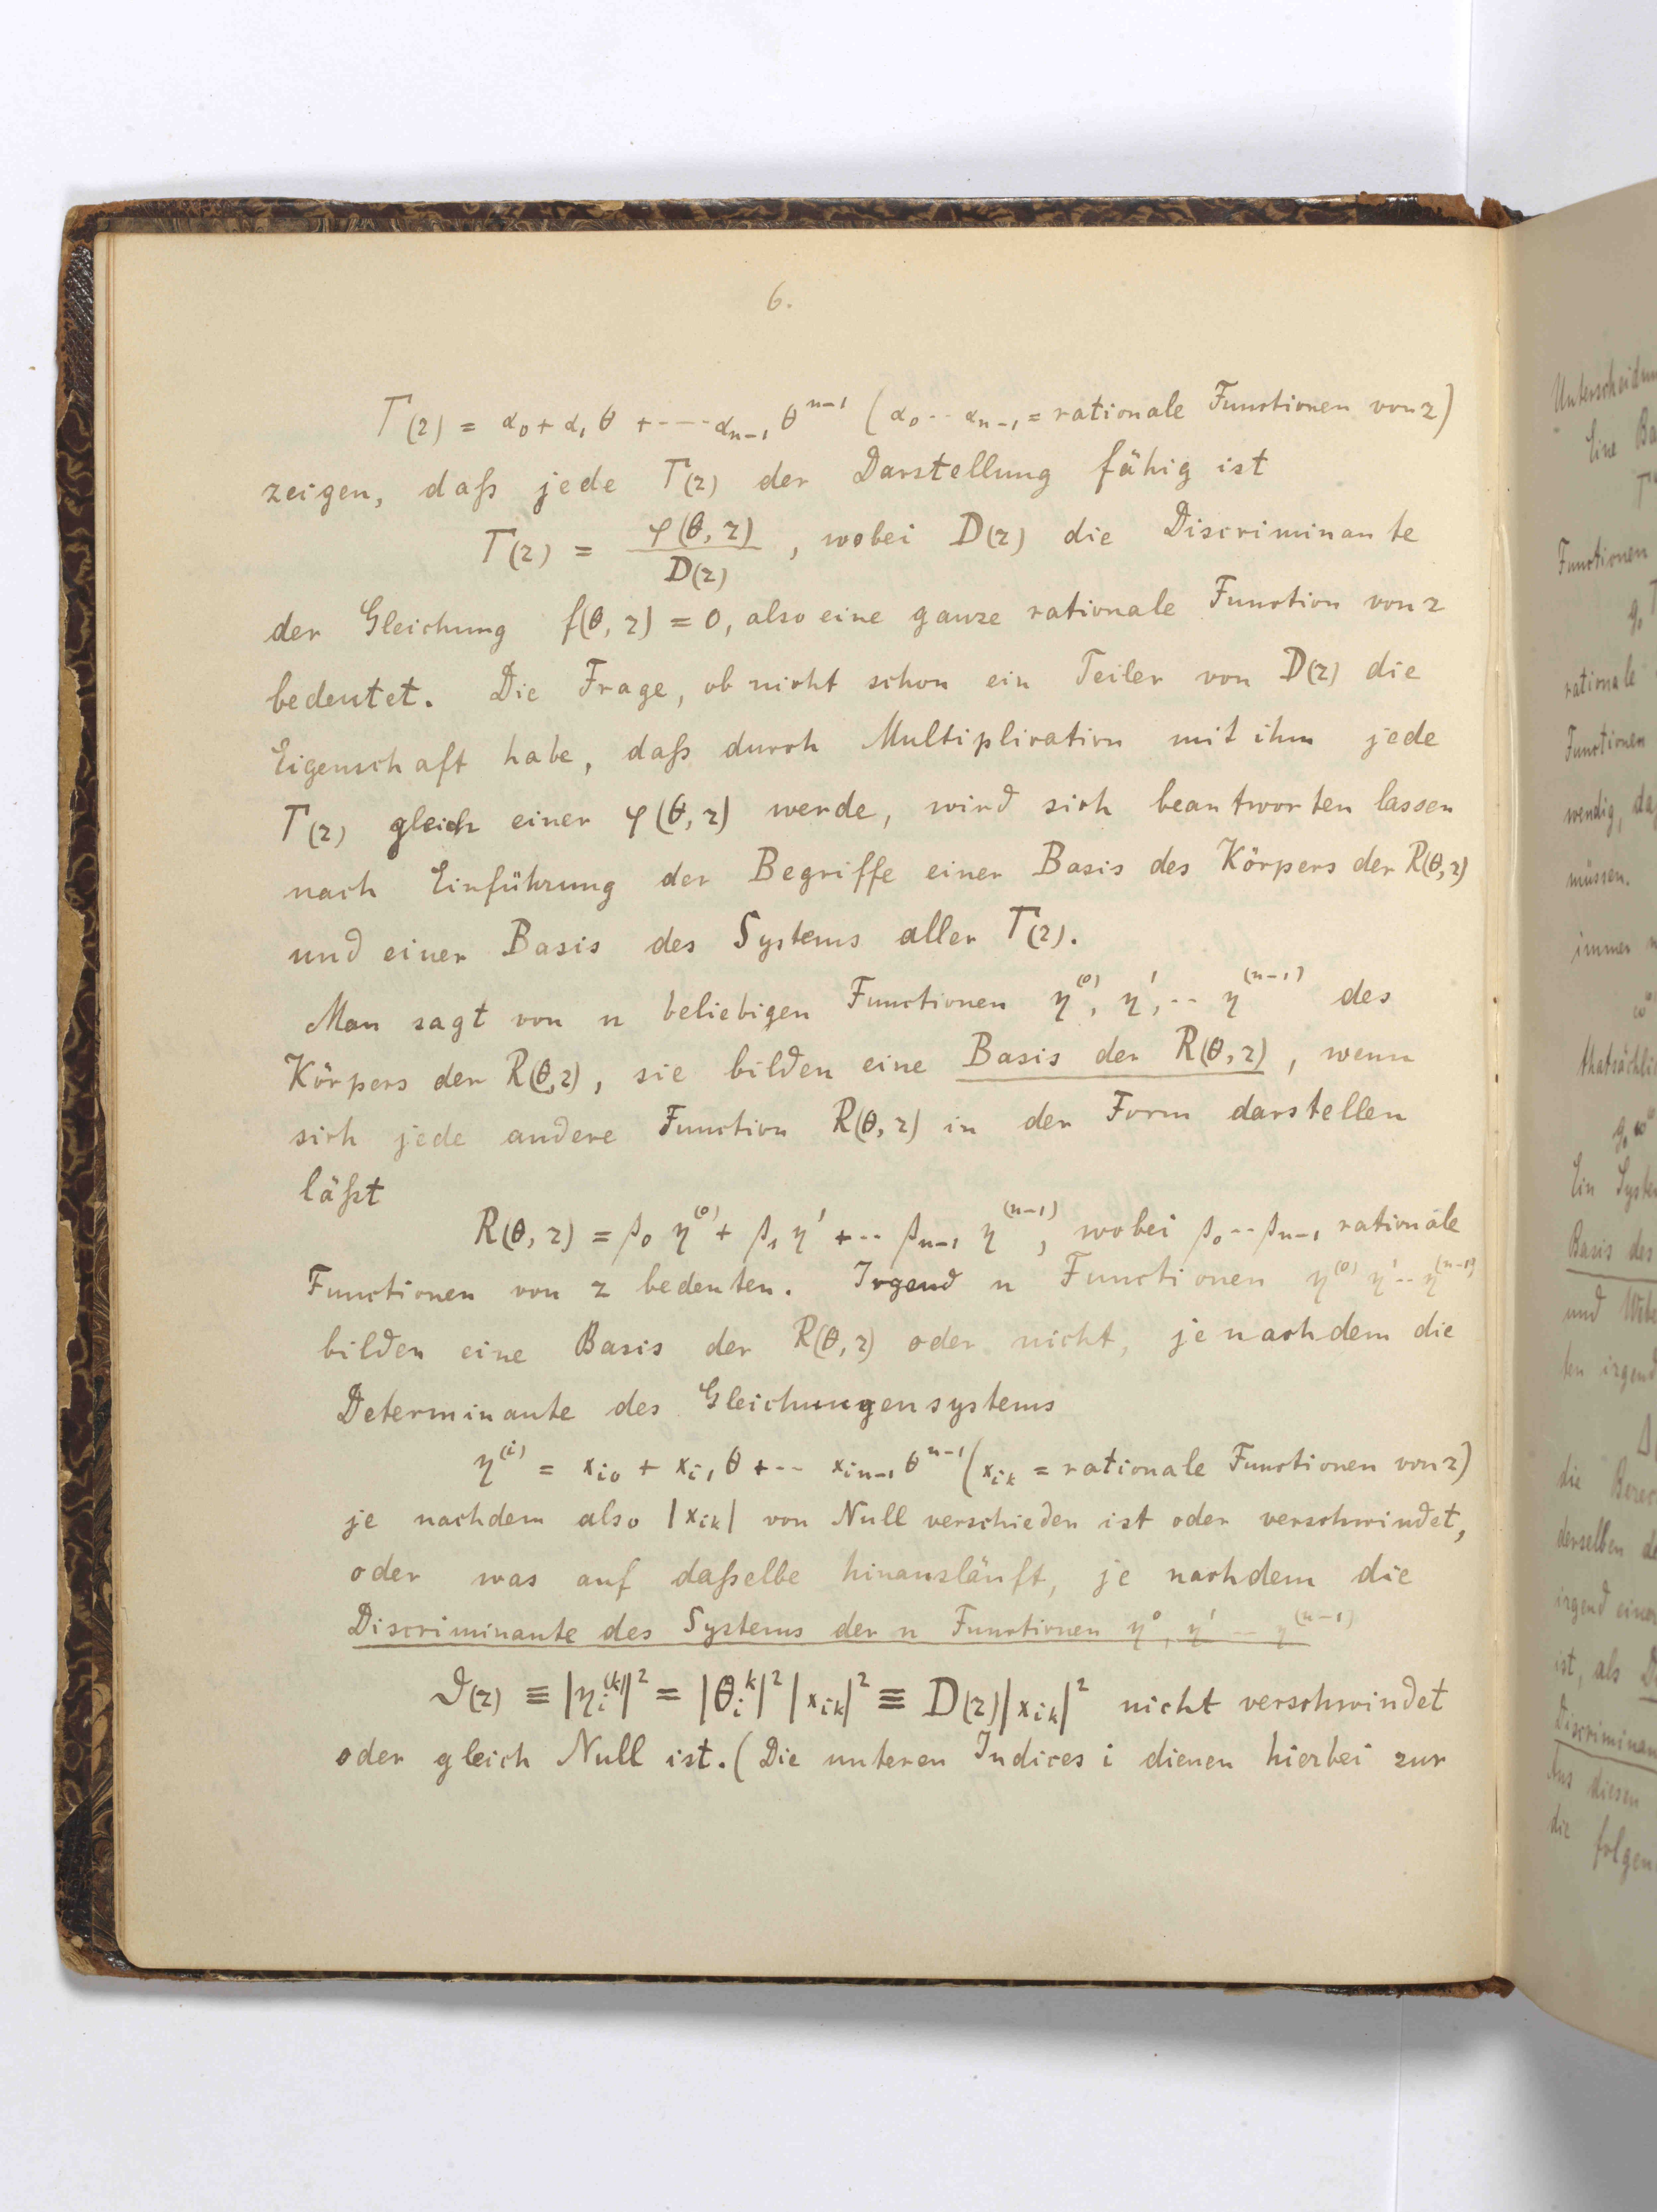 6.
Γ(z) = α₀ + α₁ θ + ---- αₙ₋₁ θⁿ⁻¹ (α₀ -- αₙ₋₁ = rationale Functionen von z)
zeigen, daß jede Γ(z) der Darstellung fähig ist
Γ(z) = φ(θ, z) / D(z) , wobei D(z) die Discriminante
der Gleichung f(θ, z) = 0, also eine ganze rationale Function von z
bedeutet. Die Frage, ob nicht schon ein Teiler von D(z) die
Eigenschaft habe, daß durch Multiplication mit ihm jede
Γ(z) gleich einer φ(θ, z) werde, wird sich beantworten lassen
nach Einführung der Begriffe einer Basis des Körpers der R(θ, z)
und einer Basis des Systems aller Γ(z).
Man sagt von n beliebigen Functionen η⁽⁰⁾, η′, -- η⁽ⁿ⁻¹⁾ des
Körpers der R(θ, z), sie bilden eine Basis der R(θ, z), wenn
sich jede andere Function R(θ, z) in der Form darstellen
läßt
R(θ, z) = β₀ η⁽⁰⁾ + β₁ η′ + -- βₙ₋₁ η⁽ⁿ⁻¹⁾, wobei β₀ -- βₙ₋₁ rationale
Functionen von z bedeuten. Irgend n Functionen η⁽⁰⁾ η′ -- η⁽ⁿ⁻¹⁾
bilden eine Basis der R(θ, z) oder nicht, je nachdem die
Determinante des Gleichungensystems
η⁽ⁱ⁾ = x_{i0} + x_{i1} θ + -- x_{in-1} θⁿ⁻¹ (x_{ik} = rationale Functionen von z)
je nachdem also |x_{ik}| von Null verschieden ist oder verschwindet,
oder was auf daßelbe hinausläuft, je nachdem die
Discriminante des Systems der n Functionen η⁰, η′ -- η⁽ⁿ⁻¹⁾
ϑ(z) ≡ |η_i^{(k)}|² = |θ_i^k|² |x_{ik}|² ≡ D(z)|x_{ik}|² nicht verschwindet
oder gleich Null ist. (Die unteren Indices i dienen hierbei zur